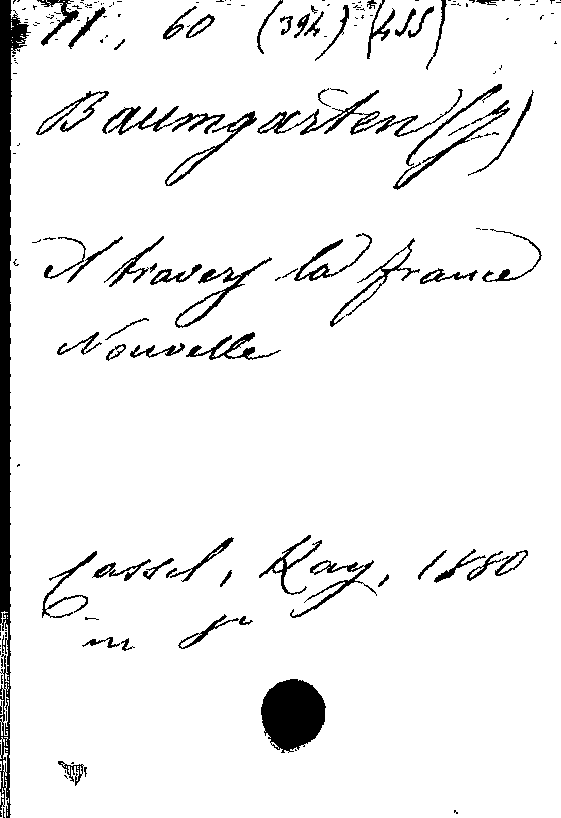 11., 60 (394) (455)
Baumgarten (J)
A travers la france
Nouvelle
Cassel, Kay, 1880
in 8°